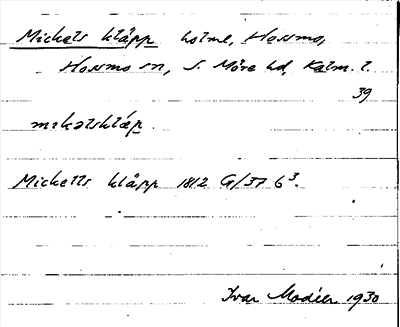 Mickels klåpp holme, Hossmo,
Hossmo sn, S. Möre hd, Kalm. l.
39
mɪkəlsklåp.
Mickells klåpp 1812 G/37 6³.
Ivar Modéer 1930